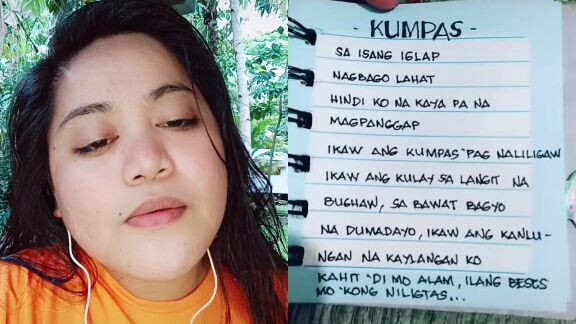 - KUMPAS -
SA ISANG IGLAP
NAGBAGO LAHAT
HINDI KO NA KAYA PA NA
MAGPANGGAP
IKAW ANG KUMPAS 'PAG NALILIGAW
IKAW ANG KULAY SA LANGIT NA
BUGHAW, SA BAWAT BAGYO
NA DUMADAYO, IKAW ANG KANLU-
NGAN NA KAYLANGAN KO
KAHIT 'DI MO ALAM, ILANG BESES
MO 'KONG NILIGTAS...